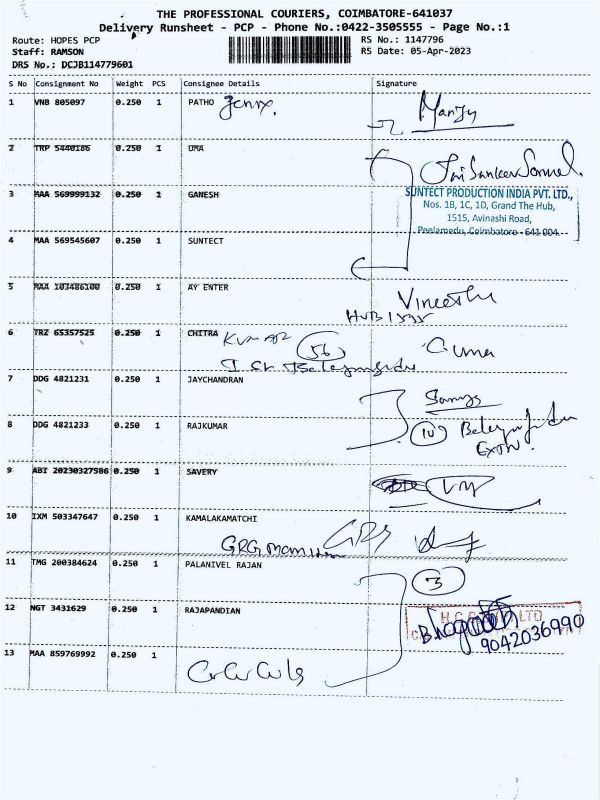 THE PROFESSIONAL COURIERS, COIMBATORE-641037
Delivery Runsheet - PCP - Phone No.:0422-3505555 - Page No.:1
Route: HOPES PCP
RS No.: 1147796
Staff: RAMSON
RS Date: 05-Apr-2023
DRS No.: DCJB114779601
S No Consignment No Weight PCS Consignee Details Signature
1 VNB 805097 0.250 1 PATHO
Manju
2 TRP 5440186 0.250 1 UMA
3 MAA 569999132 0.250 1 GANESH
SUNTECT PRODUCTION INDIA PVT. LTD.,
Nos. 1B, 1C, 1D, Grand The Hub,
1515, Avinashi Road,
Peelamedu, Coimbatore - 641 004.
4 MAA 569545607 0.250 1 SUNTECT
5 MAA 103486100 0.250 1 AY ENTER
Vineeth
HUB 1595
6 TRZ 65357525 0.250 1 CHITRA KUMAR
56
Guna
7 DDG 4821231 0.250 1 JAYCHANDRAN
8 DDG 4821233 0.250 1 RAJKUMAR
10
9 ABI 20230327586 0.250 1 SAVERY
10 IXM 503347647 0.250 1 KAMALAKAMATCHI
GRG
11 TMG 200384624 0.250 1 PALANIVEL RAJAN
3
12 NGT 3431629 0.250 1 RAJAPANDIAN
LTD
9042036990
13 MAA 859769992 0.250 1